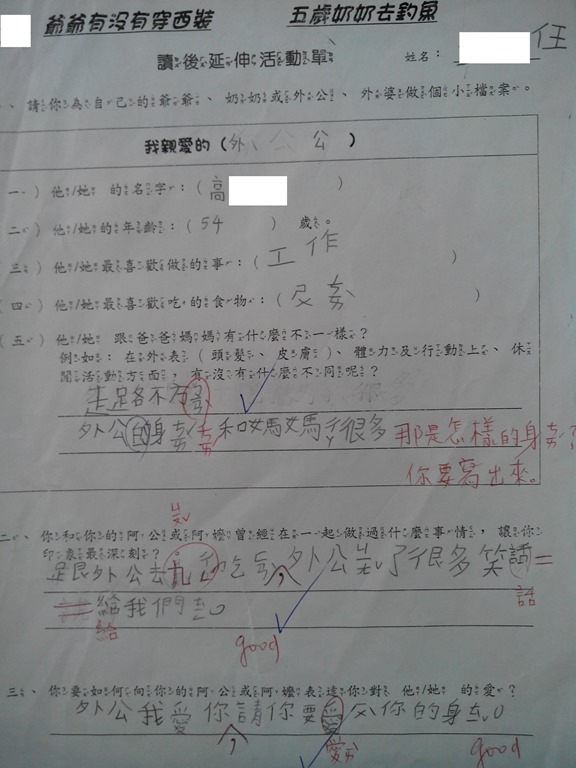 爺爺有沒有穿西裝 五歲奶奶去釣魚
讀後延伸活動單 姓名： 任
、請你為自己的爺爺、奶奶或外公、外婆做個小檔案。
我親愛的（外公）
一）他/她 的名字：（高 ）
二）他/她的年齡：（54 ）歲。
三）他/她最喜歡做的事：（工作 ）
（四）他/她最喜歡吃的食物：（ ）
（五）他/她 跟爸爸媽媽有什麼不一樣？
例如：在外表（頭髮、皮膚）、體力及行動上、休
閒活動方面，有沒有什麼不同呢？
外公的身 和 媽媽 很多 那是怎樣的身ㄊ？
你要寫出來。
二、你和你的阿公或阿嬤曾經在一起做過什麼事情，讓你
印象最深刻？
跟外公去 吃 ，外公 了很多笑話
話
給我們
給
good
三、你要如何向你的阿公或阿嬤表達你對 他/她 的愛？
外公我愛你，請你要愛 你的身 。
good